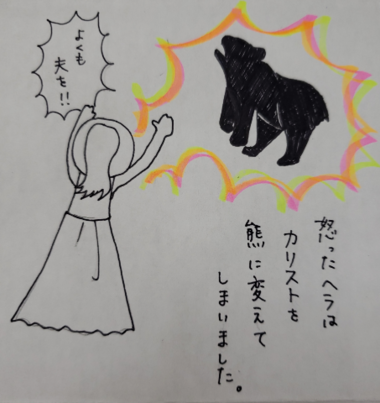 よくも
夫を!!
怒ったヘラは
カリストを
熊に変えて
しまいました。